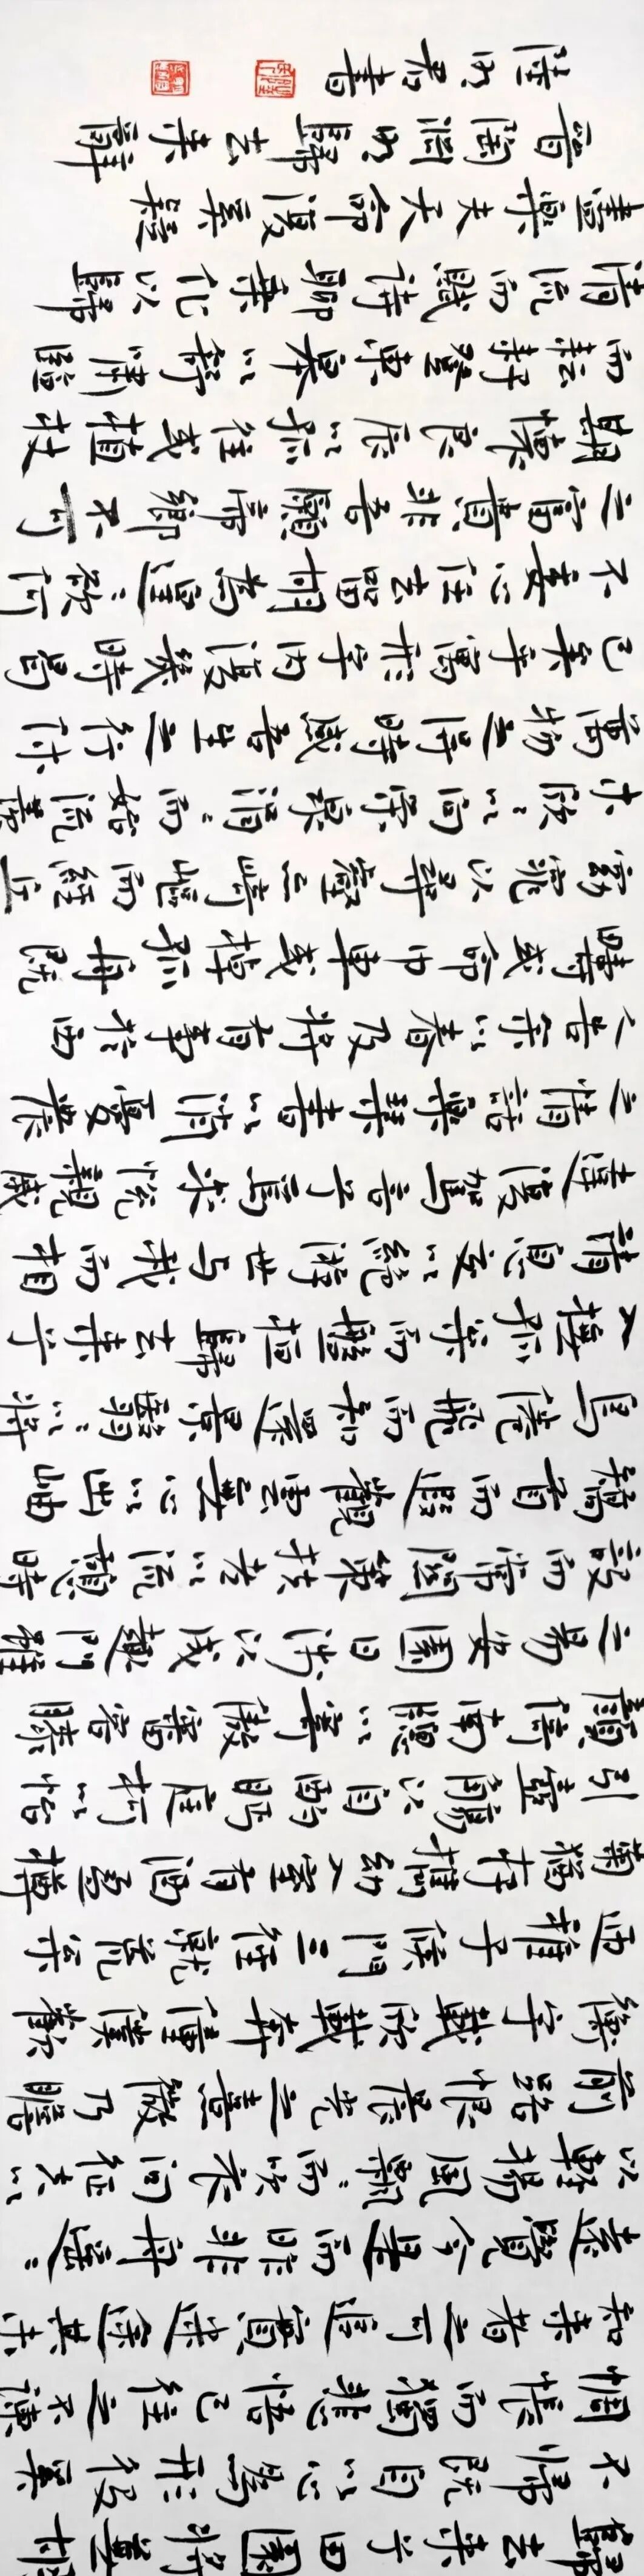 歸去来兮田園將蕪胡
不歸既自以心為形役奚
惆悵而獨悲悟已往之不諫
知来者之可追實迷途其未
遠覺今是而昨非舟遙〻
以輕颺風飄〻而吹衣問征夫以
前路恨晨光之熹微乃瞻
衡宇載欣載奔僮僕歡
迎稚子候門三徑就荒松
菊猶存攜幼入室有酒盈樽
引壺觴以自酌眄庭柯以怡
顏倚南窗以寄傲審容膝
之易安園日涉以成趣門雖
設而常關策扶老以流憩時
矯首而遐觀雲無心以出岫
鳥倦飛而知還景翳〻以將
入撫孤松而盤桓歸去来兮
請息交以絕游世与我而相
違復駕言兮焉求悅親戚
之情話樂琴書以消憂農
人告余以春及將有事於西
疇或命巾車或棹孤舟既
窈窕以尋壑亦崎嶇而經丘
木欣〻以向榮泉涓〻而始流善
萬物之得時感吾生之行休
已矣乎寓形宇內復幾時曷
不委心任去留胡為遑〻欲何
之富貴非吾願帝鄉不可
期懷良辰以孤往或植杖
而耘耔登東皋以舒嘯臨
清流而賦詩聊乘化以歸
盡樂夫天命復奚疑
晉陶淵明歸去来辭
陸君書